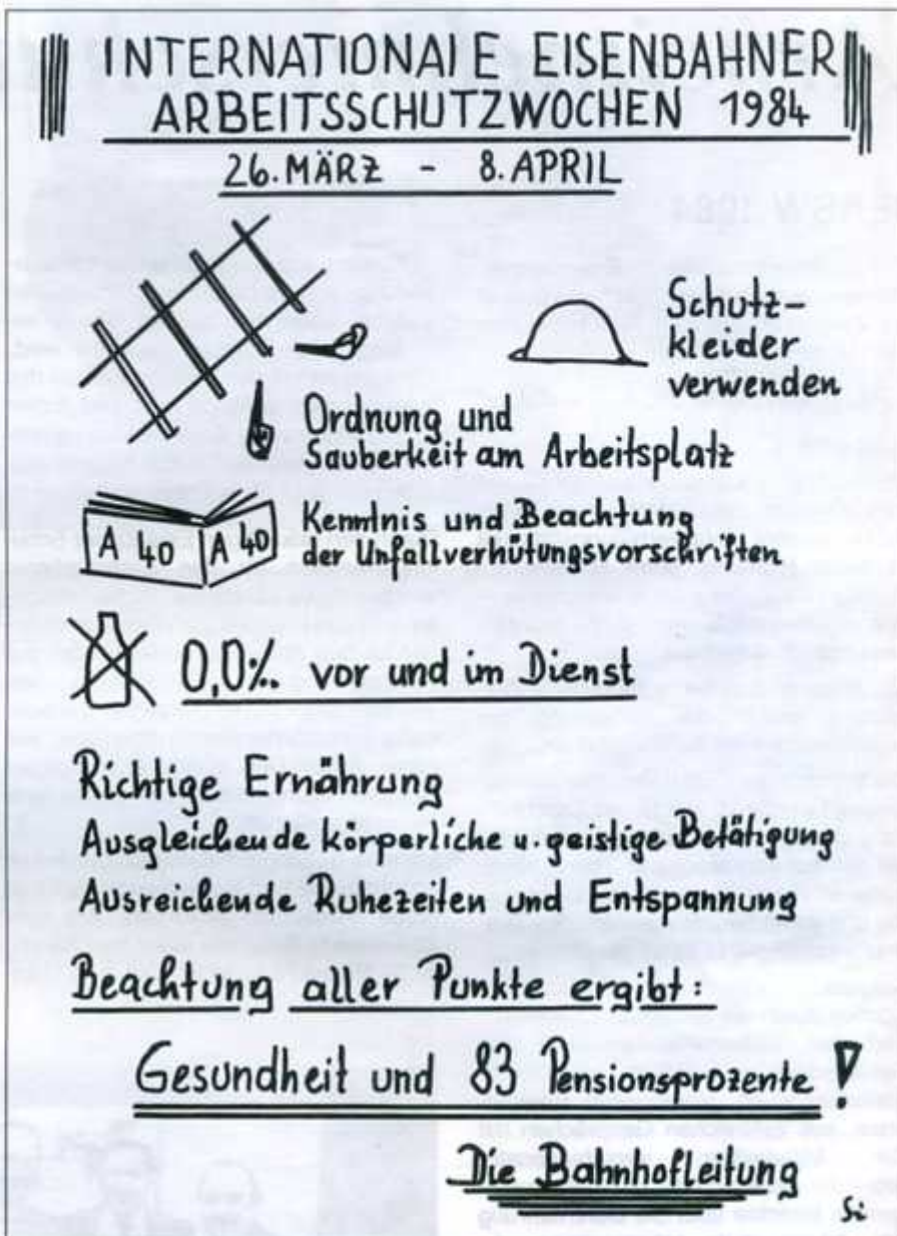 INTERNATIONALE EISENBAHNER
ARBEITSSCHUTZWOCHEN 1984
26. MÄRZ - 8. APRIL
Schutz-
kleider
verwenden
Ordnung und
Sauberkeit am Arbeitsplatz
A 40 A 40
Kenntnis und Beachtung
der Unfallverhütungsvorschriften
0,0‰ vor und im Dienst
Richtige Ernährung
Ausgleichende körperliche u. geistige Betätigung
Ausreichende Ruhezeiten und Entspannung
Beachtung aller Punkte ergibt:
Gesundheit und 83 Pensionsprozente!
Die Bahnhofleitung
Si